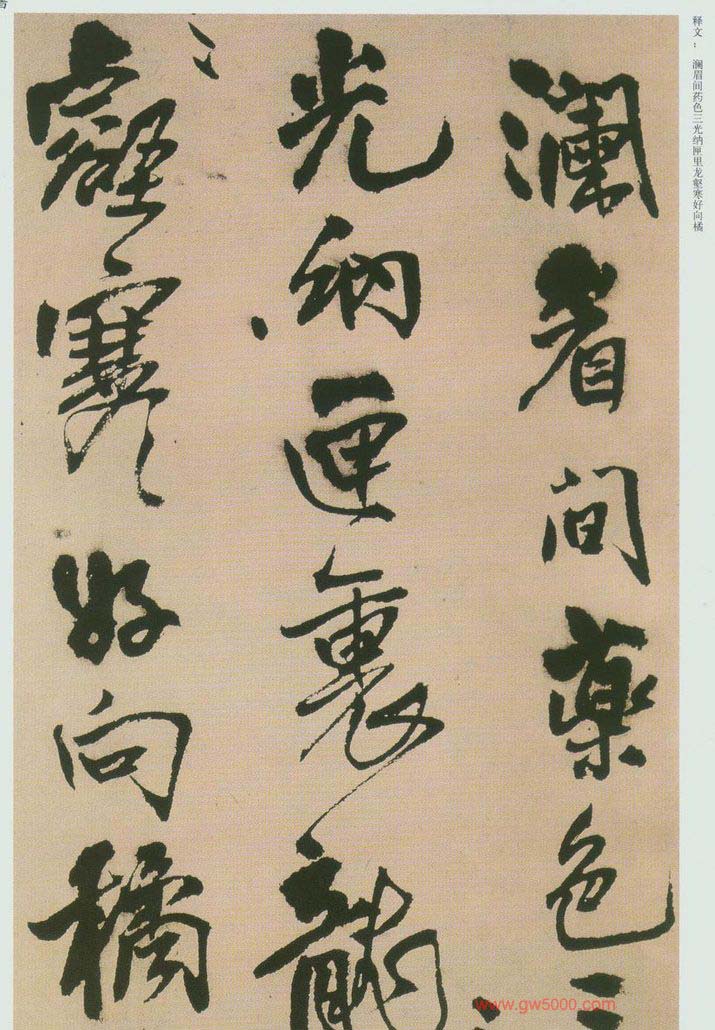 释文： 澜眉间药色三光纳匣里龙壑寒好向橘
瀾眉間藥色三
光納匣裏龍
壑寒好向橘
www.gw5000.com